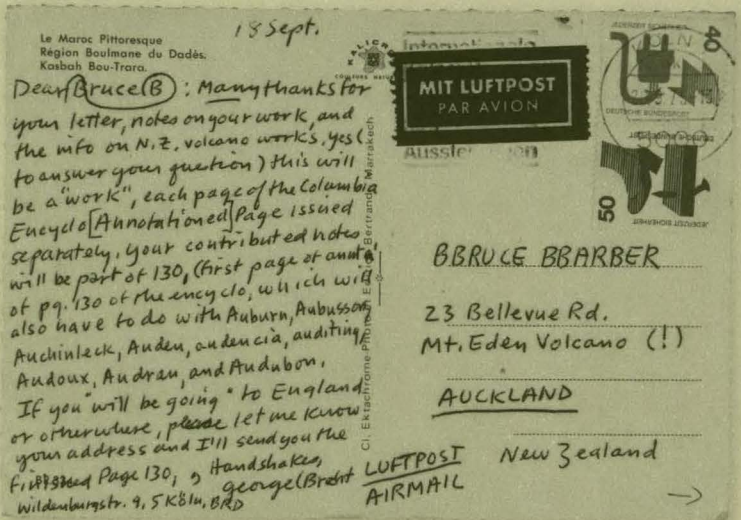 18 Sept.
Le Maroc Pittoresque
Région Boulmane du Dadès.
Kasbah Bou-Trara.
Dear Bruce B : Many thanks for
your letter, notes on your work, and
the info on N.Z. volcano works. yes (
to answer your question) this will
be a "work", each page of the Columbia
Encyclo [Annotationed] Page issued
separately. Your contributed notes
will be part of 130, (first page of
of pg. 130 of the encyclo, which will
also have to do with Auburn, Aubusson,
Auchinleck, Auden, audencia, auditing,
Audoux, Audran, and Audubon.
If you "will be going" to England
or otherwhere, please let me know
your address and I'll send you the
Page 130, Handshakes,
george (Brecht
Wildenburgstr. 9, 5 Köln, BRD
KALICRO
Cl. Ektachrome Bertrand, Marrakech
Internationale
MIT LUFTPOST
PAR AVION
40
JEDERZEIT SICHERHEIT
DEUTSCHE BUNDESPOST
50
JEDERZEIT SICHERHEIT
DEUTSCHE BUNDESPOST
BBRUCE BBARBER
23 Bellevue Rd.
Mt. Eden Volcano (!)
AUCKLAND
New Zealand
LUFTPOST
AIRMAIL